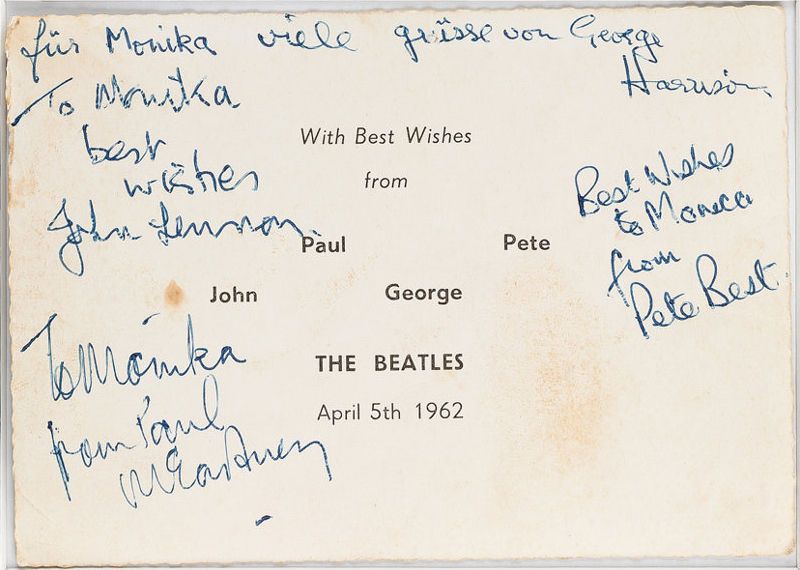 für Monika viele grüsse von George
Harrison
To Monika
best
wishes
John Lennon
With Best Wishes
from
Paul Pete
John George
THE BEATLES
April 5th 1962
Best Wishes
to Monica
from
Pete Best.
To Monika
from Paul
McCartney